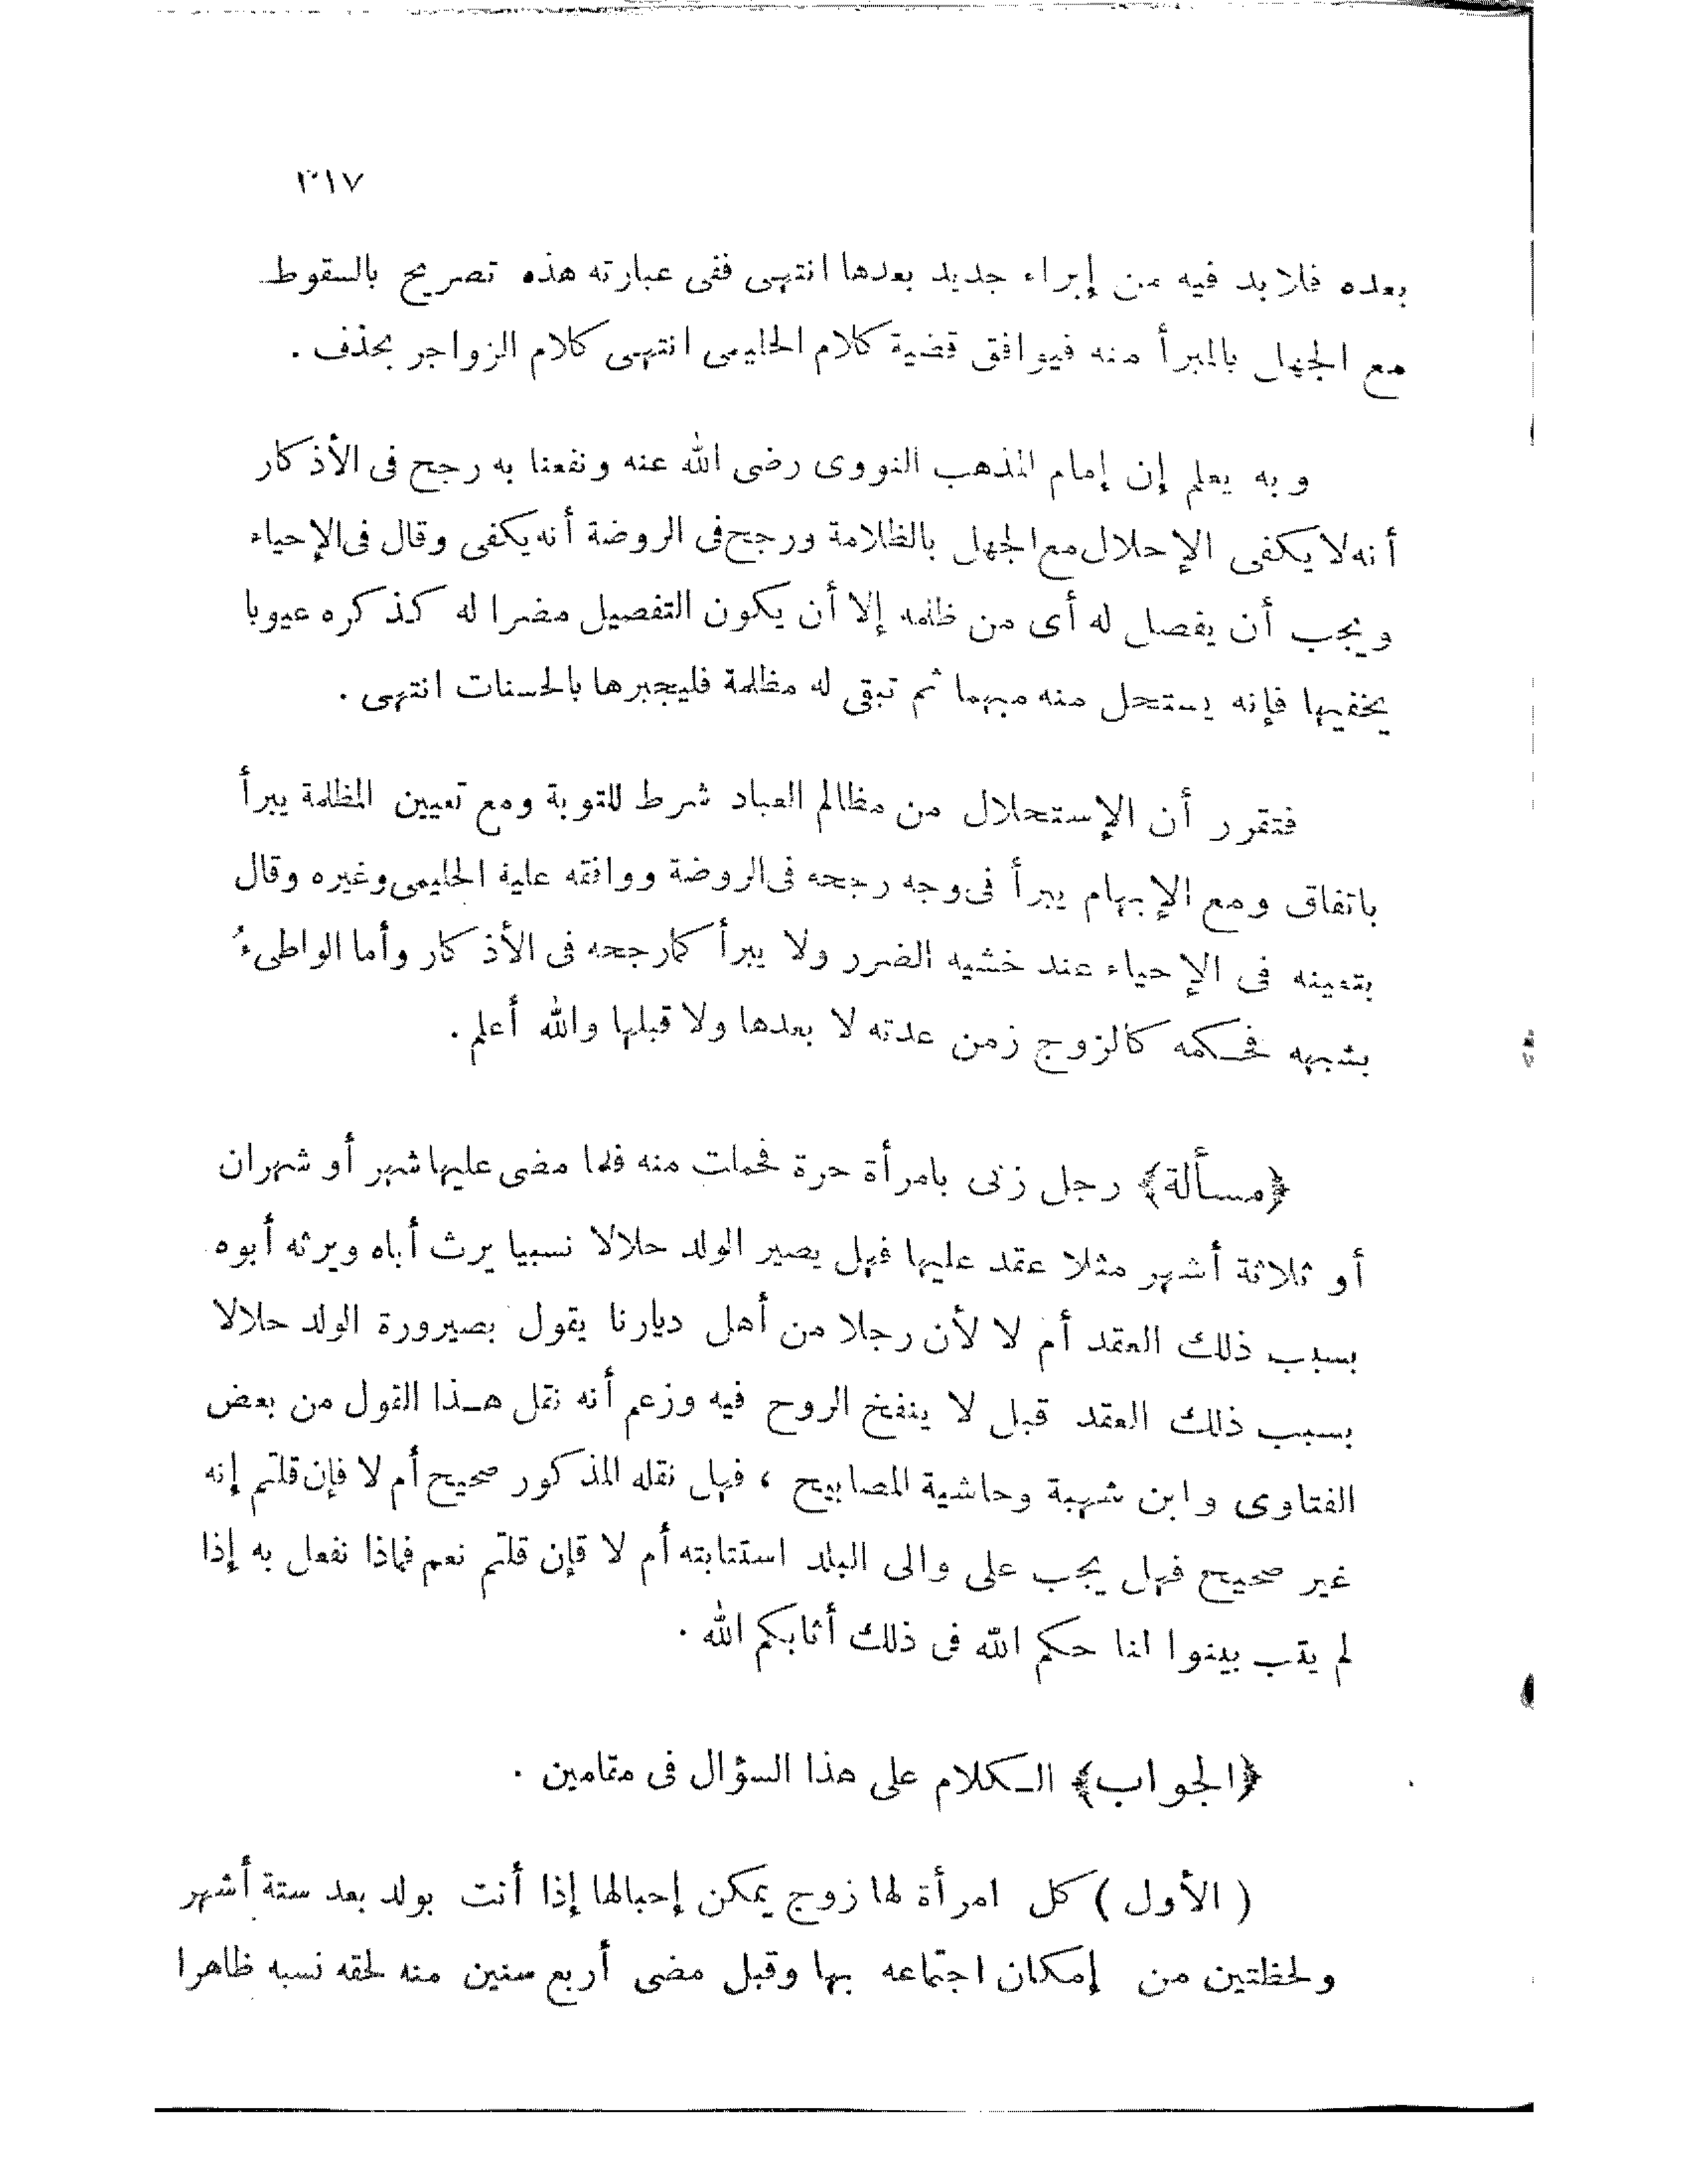 ٣١٧
بعده فلا بد فيه من إبراء جديد بعدها انتهى ففى عبارته هذه تصريح بالسقوط
مع الجهل بالمبرأ منه فيوافق قضية كلام الحليمى انتهى كلام الزواجر بحذف .
وبه يعلم إن إمام المذهب النووى رضى الله عنه ونفعنا به رجح فى الأذكار
أنه لا يكفى الإحلال مع الجهل بالظلامة ورجح فى الروضة أنه يكفى وقال فى الإحياء
ويجب أن يفصل له أى من ظلمه إلا أن يكون التفصيل مضرا له كذكره عيوبا
يخفيها فإنه يستحل منه مبهما ثم تبقى له مظلمة فليجبرها بالحسنات انتهى .
فتقرر أن الإستحلال من مظالم العباد شرط للتوبة ومع تعيين المظلمة يبرأ
باتفاق ومع الإبهام يبرأ فى وجه رجحه فى الروضة ووافقه علية الحليمى وغيره وقال
بتعينه فى الإحياء عند خشيه الضرر ولا يبرأ كمارجحه فى الأذكار وأما الواطىءُ
بشبهه فحكمه كالزوج زمن عدته لا بعدها ولا قبلها والله أعلم .
﴿مسألة﴾ رجل زنى بامرأة حرة فحملت منه فلما مضى عليها شهر أو شهران
أو ثلاثة أشهر مثلا عقد عليها فهل يصير الولد حلالا نسبيا يرث أباه ويرثه أبوه
بسبب ذلك العقد أم لا لأن رجلا من أهل ديارنا يقول بصيرورة الولد حلالا
بسبب ذلك العقد قبل لا ينفخ الروح فيه وزعم أنه نقل هـذا القول من بعض
الفتاوى وابن شهبة وحاشية المصابيح ، فهل نقله المذكور صحيح أم لا فإن قلتم إنه
غير صحيح فهل يجب على والى البلد استتابته أم لا قإن قلتم نعم فماذا نفعل به إذا
لم يتب بينوا لنا حكم الله فى ذلك أثابكم الله .
﴿الجواب﴾ الـكلام على هذا السؤال فى مقامين .
( الأول ) كل امرأة لها زوج يمكن إحبالها إذا أنت بولد بعد ستة أشهر
ولحظتين من إمكان اجتماعه بها وقبل مضى أربع سنين منه لحقه نسبه ظاهرا